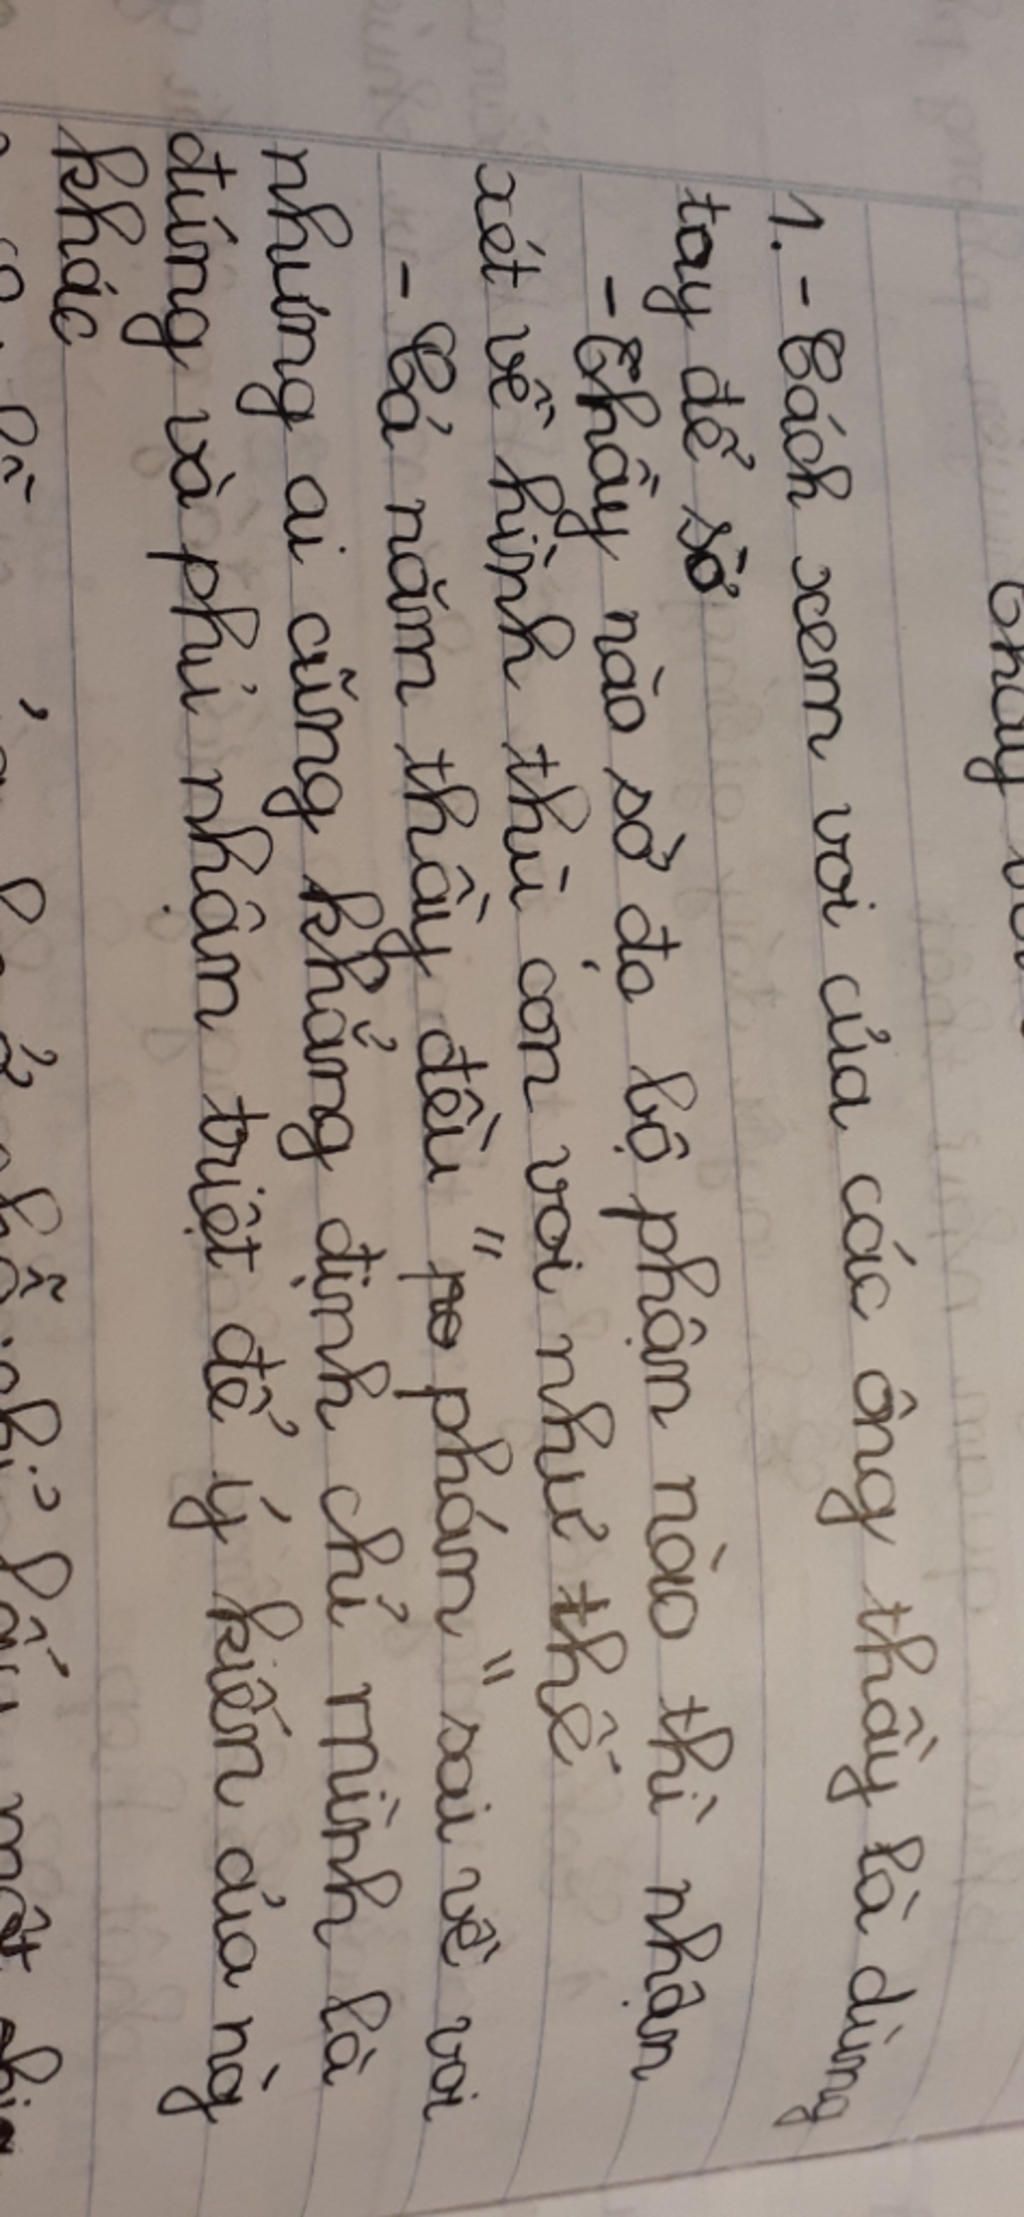 1. - Cách xem voi của các ông thầy là dùng
tay để sờ
- Thầy nào sờ đc bộ phận nào thì nhận
xét về hình thù con voi như thế
- Cả năm thầy đều " phán " sai về voi
nhưng ai cũng khẳng định chỉ mình là
đúng và phủ nhận triệt để ý kiến của ng
khác